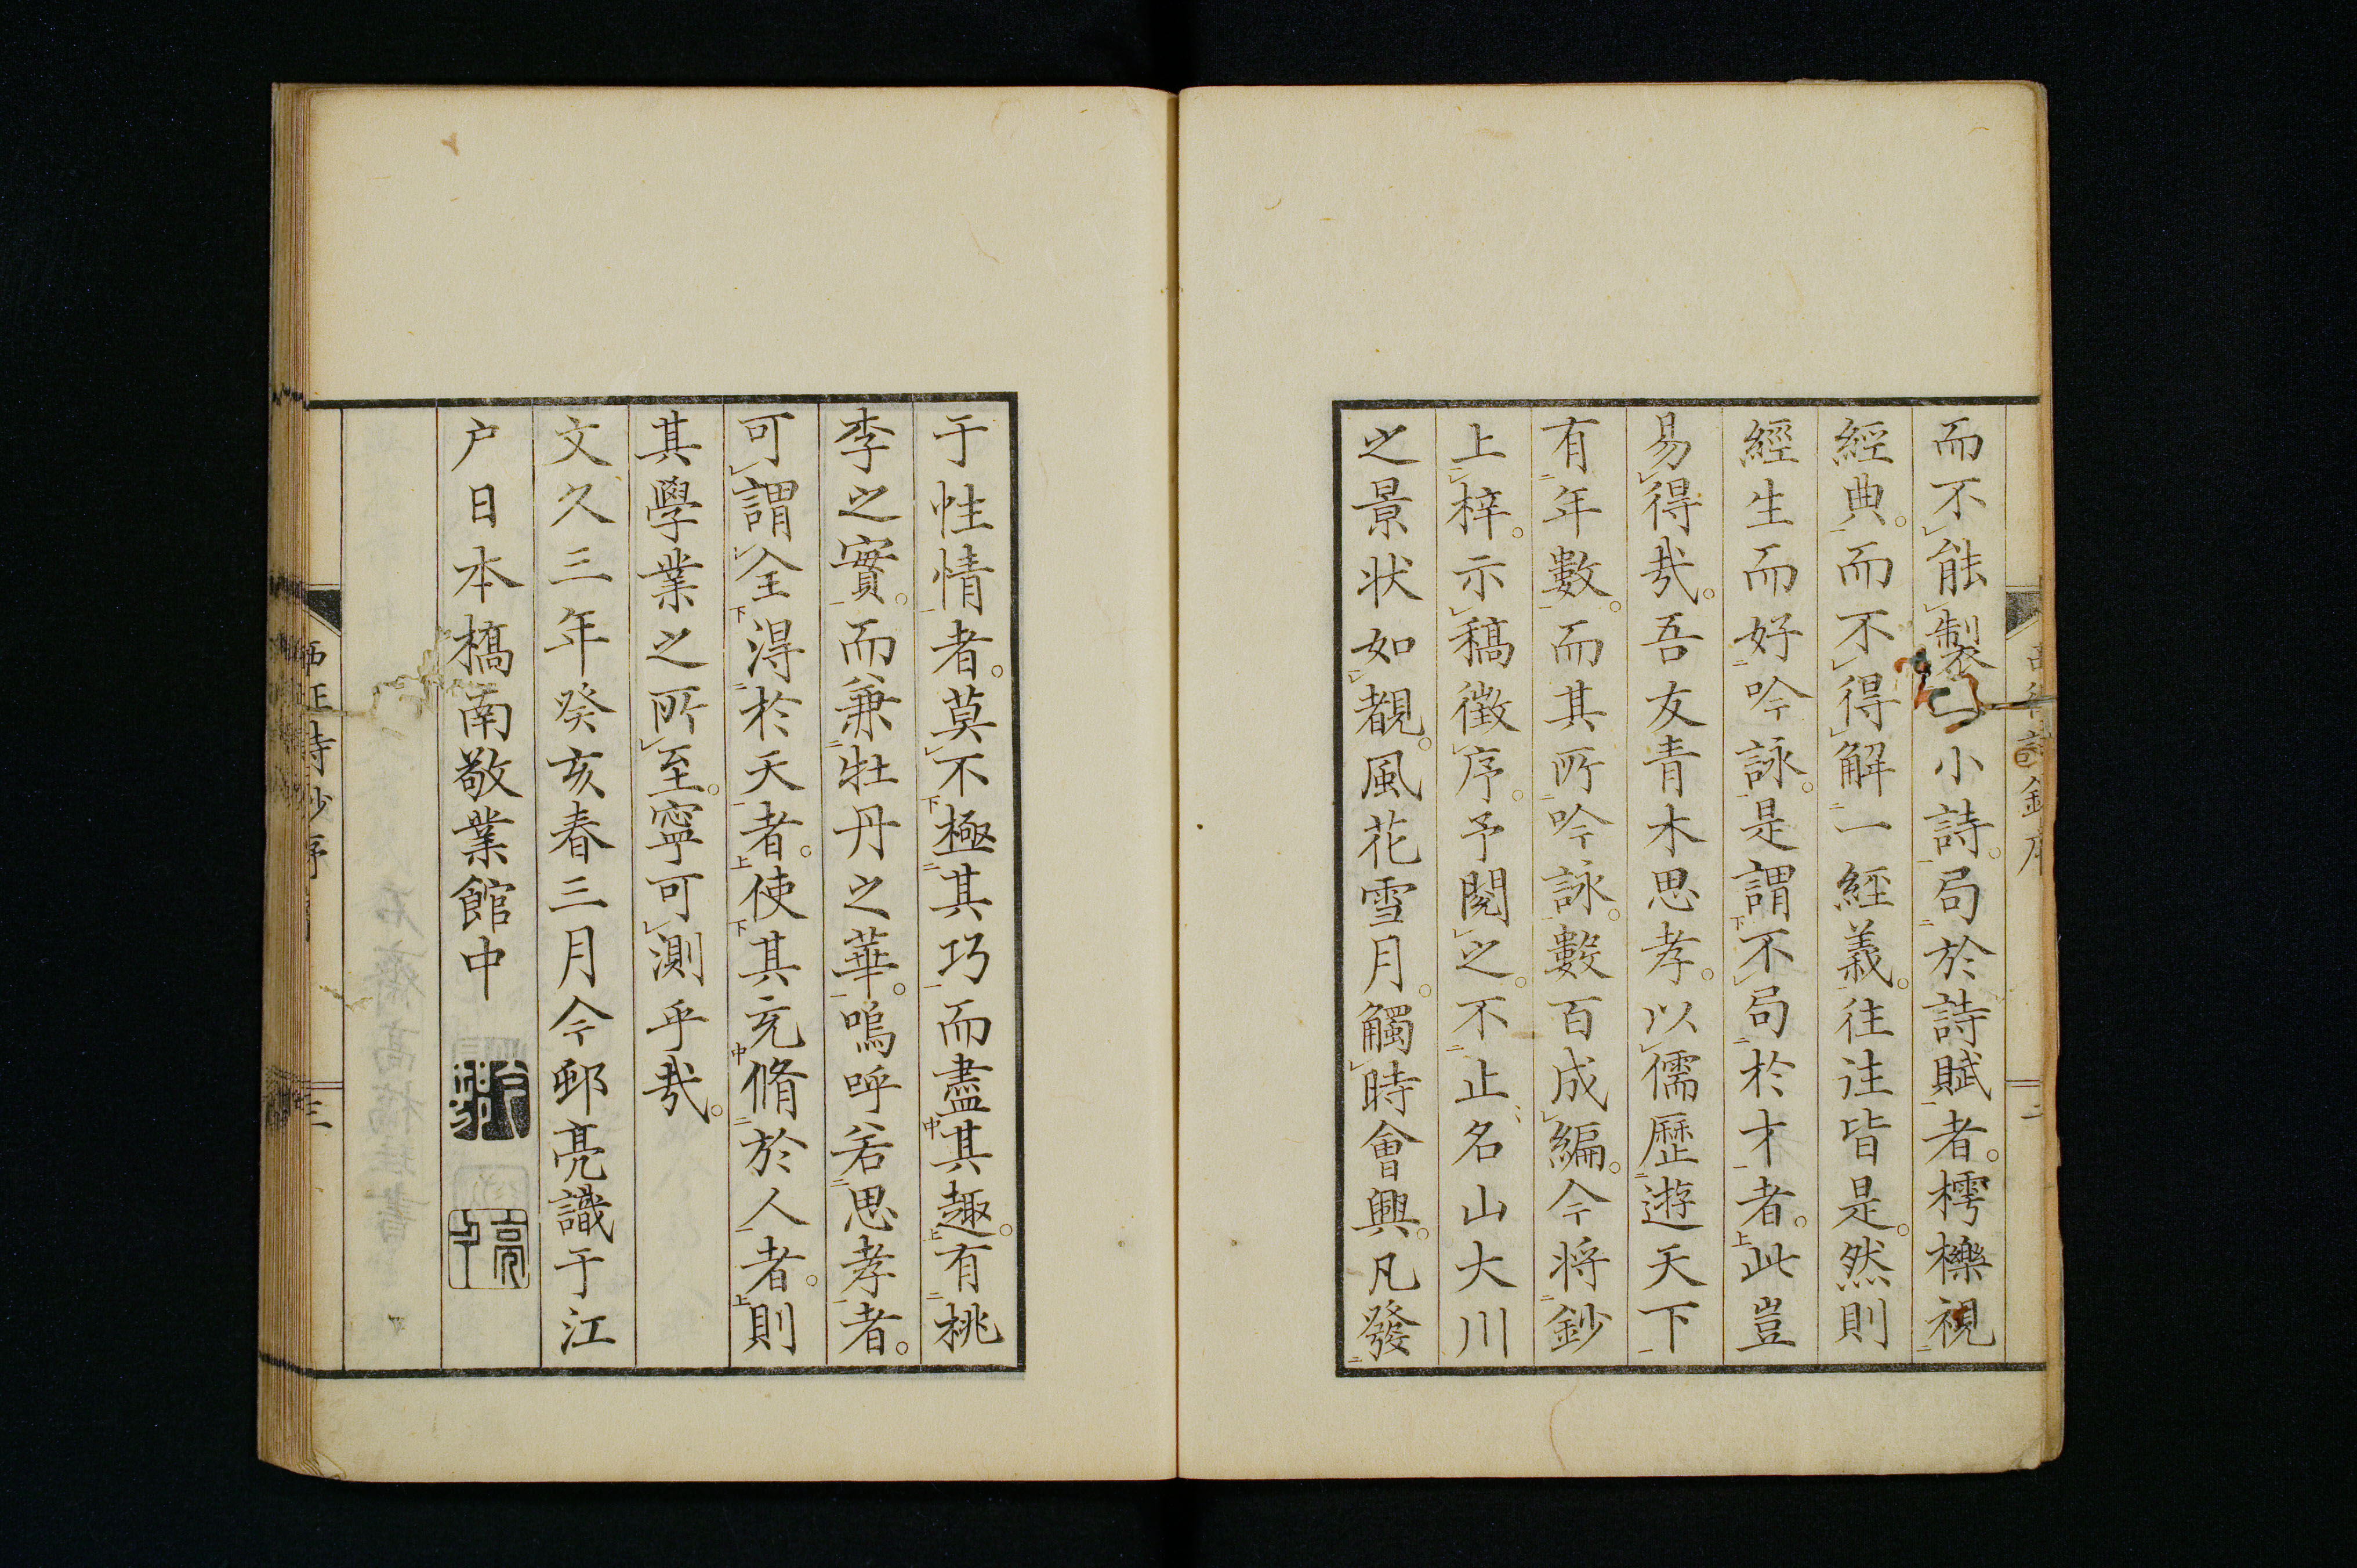 而不能製一小詩。局於詩賦者。樗櫟視
經典。而不得解一經義。往往皆是。然則
經生而好吟詠。是謂不局於才者。此豈
易得哉。吾友青木思孝。以儒歷遊天下
有年數。而其所吟詠。數百成編。今將鈔
上梓。示稿徵序。予閱之。不止名山大川
之景狀如覩。風花雪月。觸時會興。凡發
于性情者。莫不極其巧而盡其趣。有桃
李之實。而兼牡丹之華。嗚呼若思孝者。
可謂全得於天者。使其充脩於人者。則
其學業之所至。寧可測乎哉。
文久三年癸亥春三月今邨亮識于江
戶日本橋南敬業館中